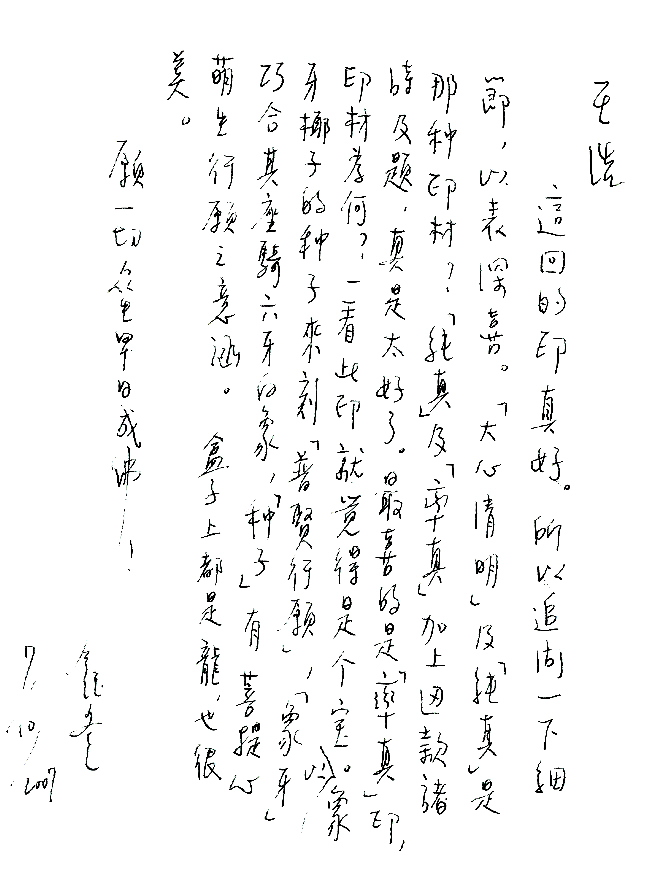 王浩
這回的印真好。所以追問一下細
節，以表深喜。「大心清明」及「純真」是
那种印材？「純真」及「率真」加上边款諸
時及題，真是太好了。最喜的是「率真」印，
印材為何？一看此印就覚得是个宝。以象
牙椰子的种子來刻「普賢行願」，「象牙」
巧合其座騎六牙白象，「种子」有菩提心
萌生行願之意涵。盒子上都是龍，也很
美。
願一切众生早日成佛！
7/10/2007